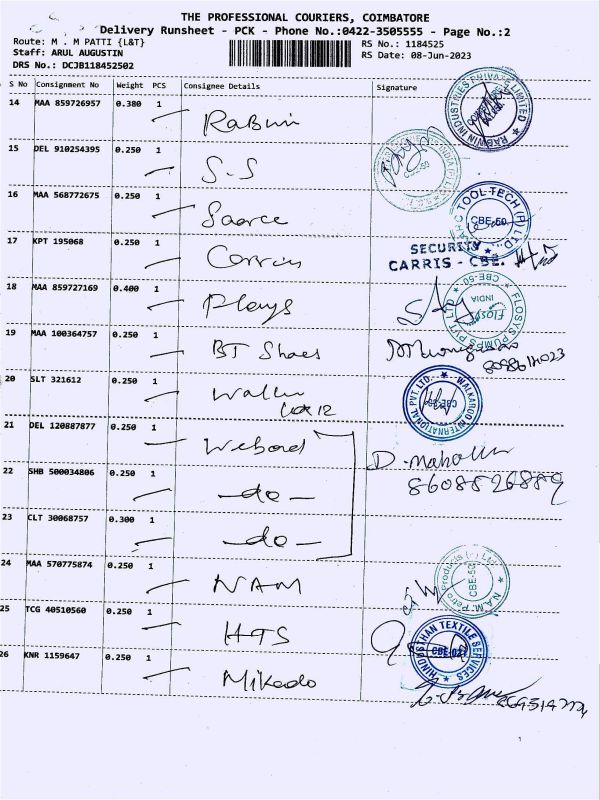 THE PROFESSIONAL COURIERS, COIMBATORE
Delivery Runsheet - PCK - Phone No.:0422-3505555 - Page No.:2
Route: M . M PATTI {L&T}
RS No.: 1184525
Staff: ARUL AUGUSTIN
RS Date: 08-Jun-2023
DRS No.: DCJB118452502
S No Consignment No Weight PCS Consignee Details Signature
14 MAA 859726957 0.380 1
Rabwin
RABWIN INDUSTRIES PRIVATE LIMITED
15 DEL 910254395 0.250 1
S-S
CBE-50
16 MAA 568772675 0.250 1
TOOL-TECH (P) LTD
CBE-50
17 KPT 195068 0.250 1
SECURITY
CARRIS - CBE.
18 MAA 859727169 0.400 1
FLOSYS PUMPS PVT LTD
CBE-50
INDIA
19 MAA 100364757 0.250 1
BT Shoes
20 SLT 321612 0.250 1
WALKAROO INTERNATIONAL PVT. LTD.
CBE-50
21 DEL 120887877 0.250 1
22 SHB 500034806 0.250 1
-do-
8608526889
23 CLT 30068757 0.300 1
-do-
24 MAA 570775874 0.250 1
NAM
N.A.M. Petro Products (P) Ltd
CBE-50
25 TCG 40510560 0.250 1
HTS
HINDUSTHAN TEXTILE SERVICES
CBE-027
26 KNR 1159647 0.250 1
Mikado
1